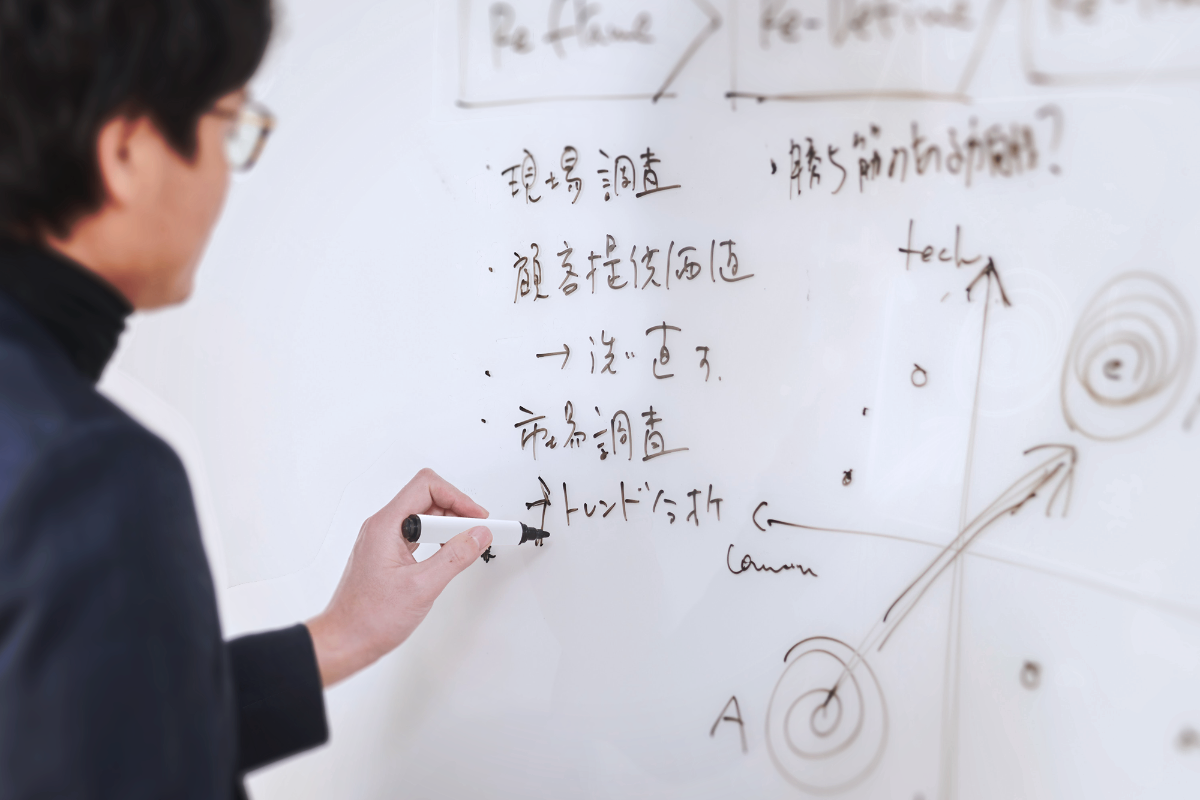 Re frame
・現場調査
・顧客提供価値
・→洗い直す.
・市場調査
→トレンド分析
・勝ち筋の
tech
Common
e
A